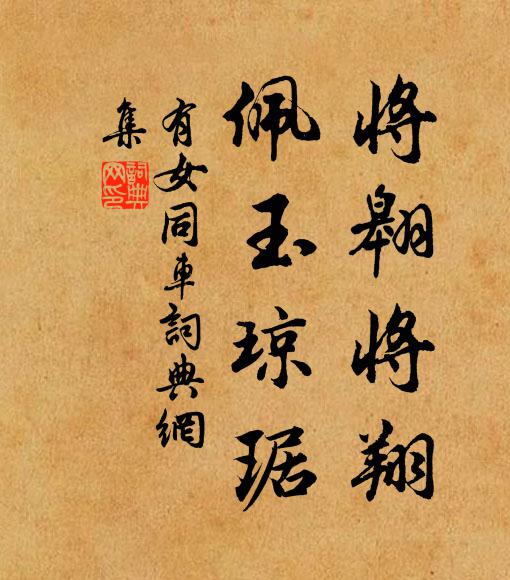 将翱将翔
佩玉琼琚
有女同車詞典網
集
詞典
网印